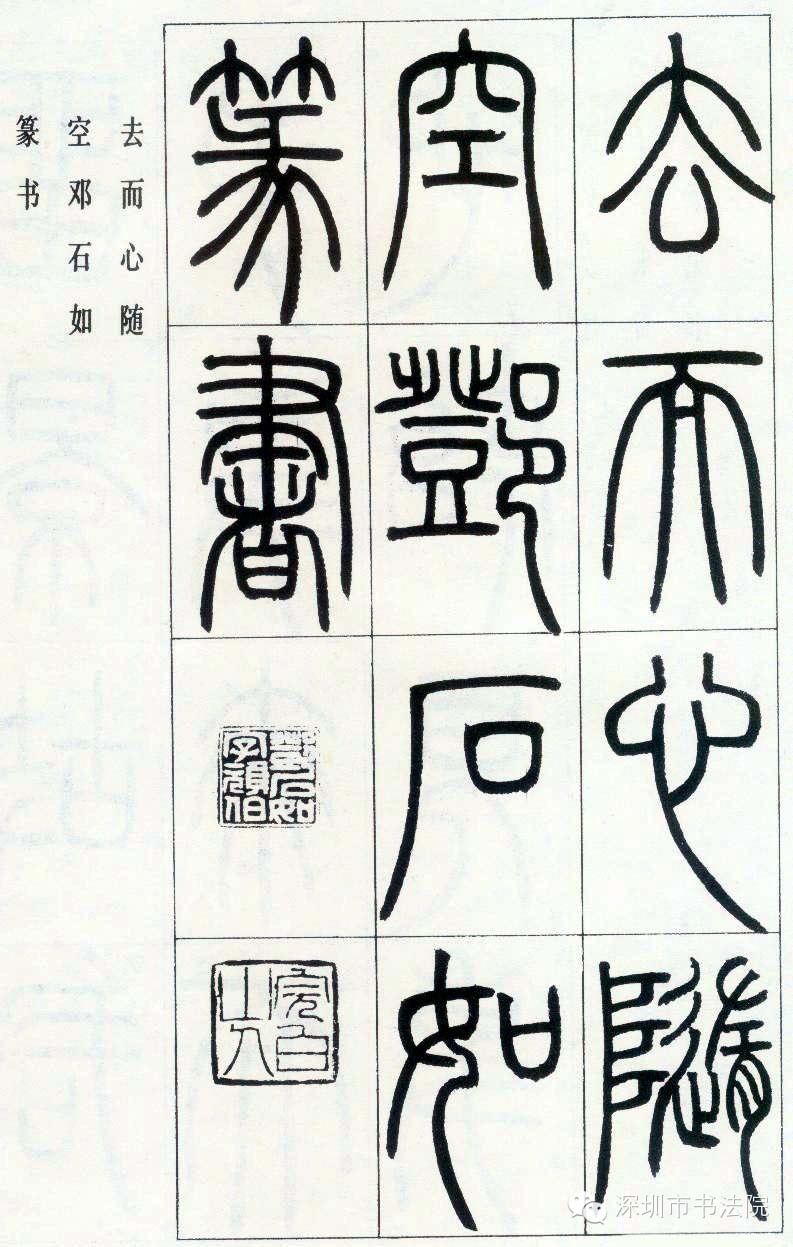 去而心隨
空鄧石如
篆書
鄧石如
字頑伯
完白
山人
去而心随
空邓石如
篆书
深圳市书法院